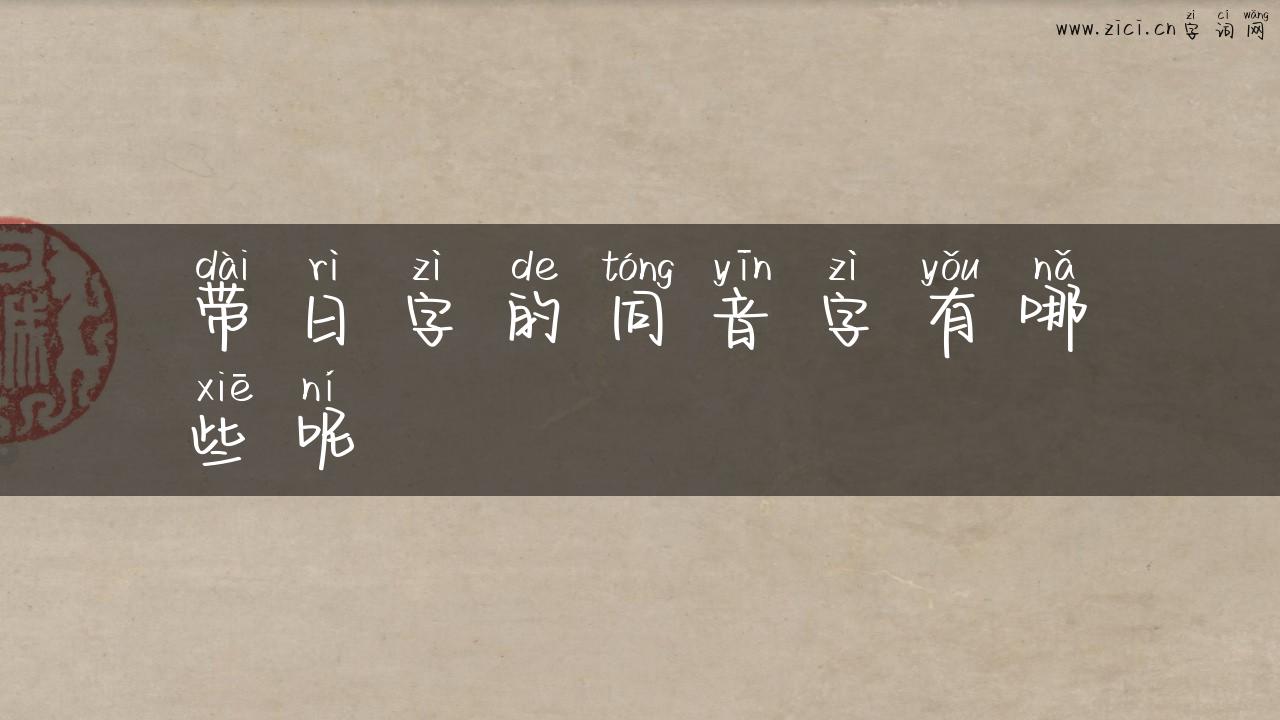 zì cí wǎng
www.zici.cn字词网
dài rì zì de tóng yīn zì yǒu nǎ
带日字的同音字有哪
xiē ní
些呢